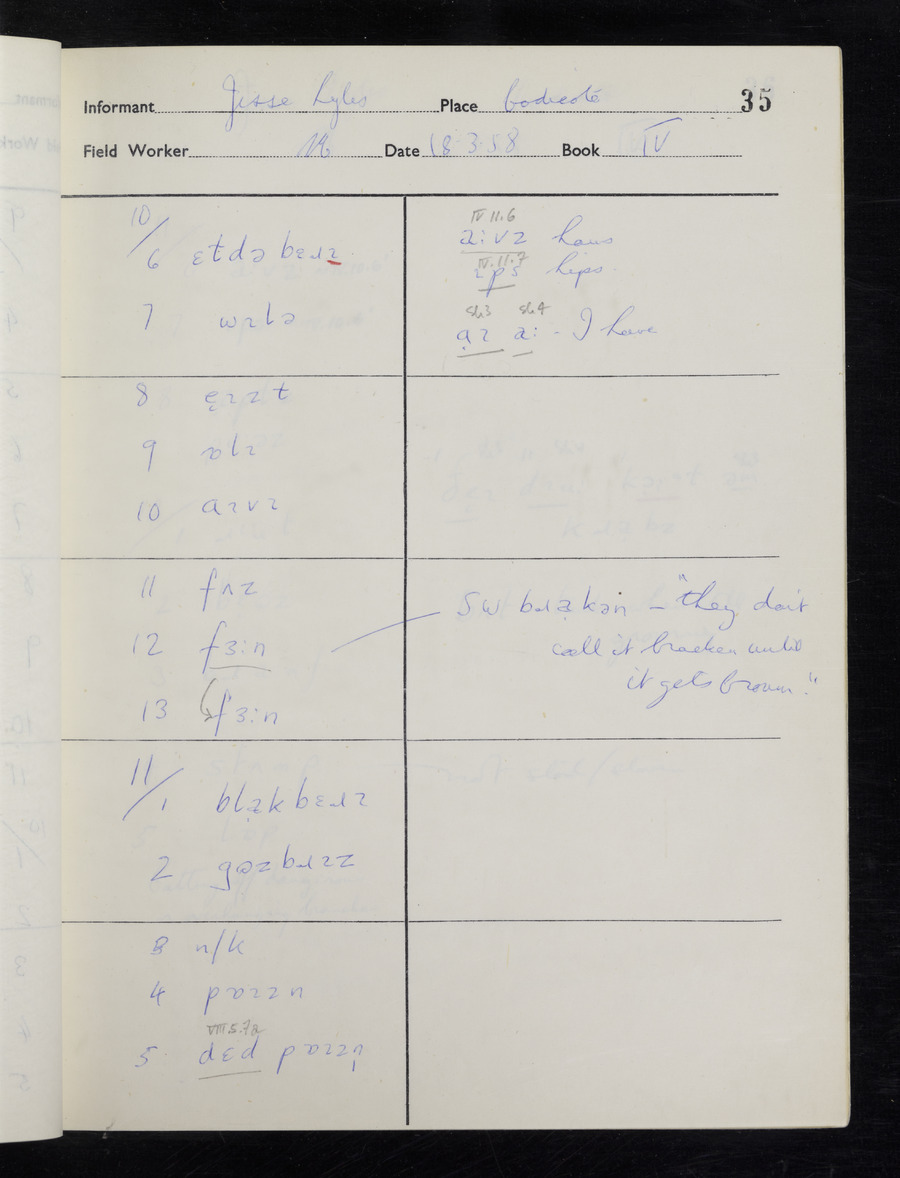 Informant Jesse Lyles Place Bodicote 35
Field Worker Date 18.3.58 Book IV
10/
6 ɛtdə bɛɹɪ
IV 11.6
a:vz haws
IV.11.7
ɪps hips
7 wɪlə
sh3 sh4
aɪ a: - I have
8 ẹɪzt
9 ɒlɪ
10 aɪvɪ
11 fʌz
12 fɜ:n
SW bɹæ̣kən – "they don't
call it bracken until
it gets brown."
13 fɜ:n
11/
1 blæ̣kbɛɹɪ
2 gɒzbɹɪz
3 n/k
4 pɒɪzn
VIII 5.7a
5 dɛd pɒɪzn̩